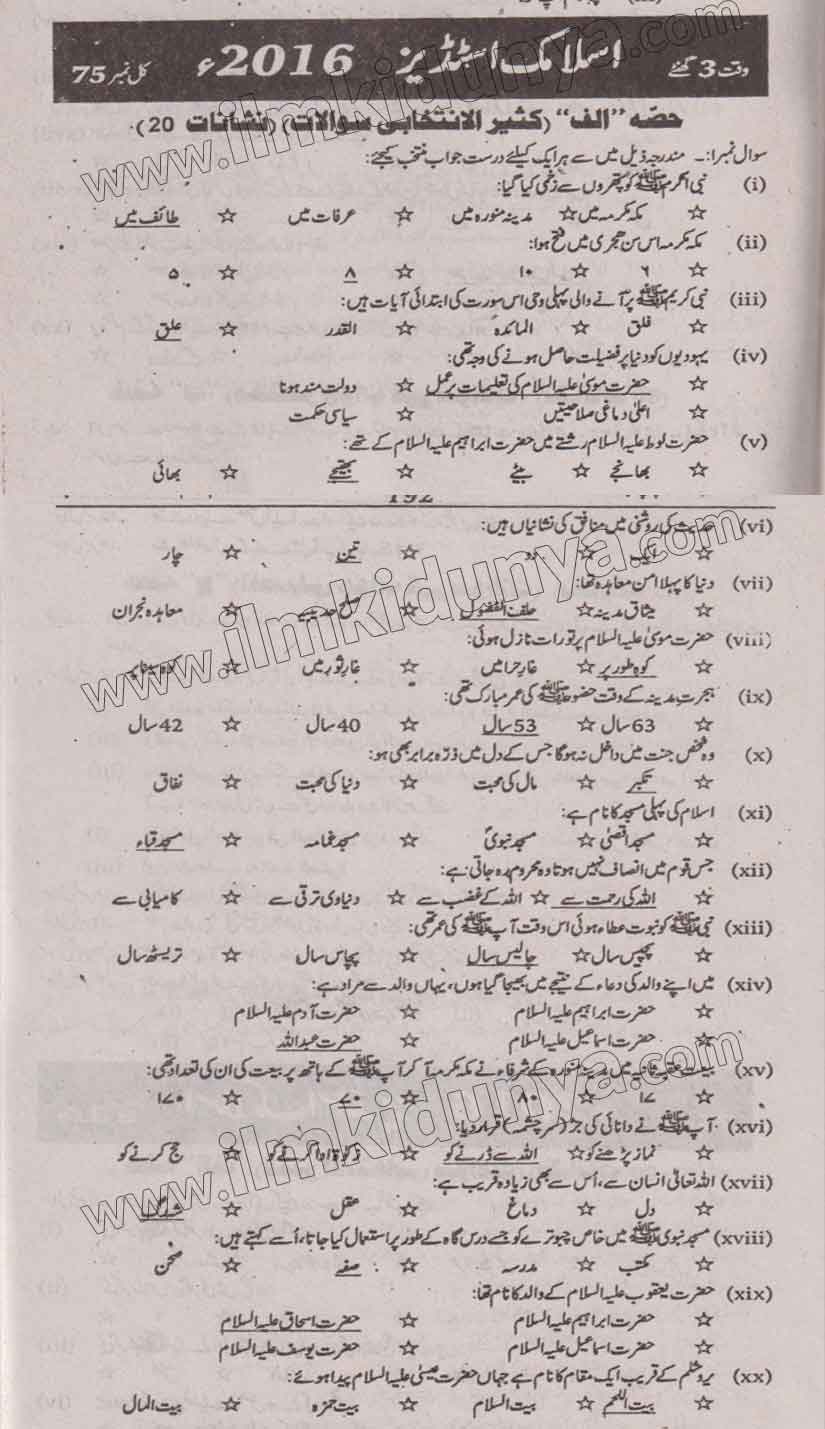 وقت 3 گھنٹے اسلامک اسٹڈیز 2016ء کل نمبر 75
حصّہ "الف" (کثیر الانتخابی سوالات) (نشانات 20)
سوال نمبر 1:۔ مندرجہ ذیل میں سے ہر ایک کیلئے درست جواب منتخب کیجئے:
(i) نبی اکرم ﷺ کو پتھروں سے زخمی کیا گیا:
☆ مکہ مکرمہ میں ☆ مدینہ منورہ میں ☆ عرفات میں ☆ طائف میں
(ii) مکہ مکرمہ اس سن ہجری میں فتح ہوا:
☆ ۶ ☆ ۱۰ ☆ ۸ ☆ ۵
(iii) نبی کریم ﷺ پر آنے والی پہلی وحی اس سورت کی ابتدائی آیات ہیں:
☆ فلق ☆ المائدہ ☆ القدر ☆ علق
(iv) یہودیوں کو دنیا پر فضیلت حاصل ہونے کی وجہ تھی:
☆ حضرت موسیٰ علیہ السلام کی تعلیمات پر عمل ☆ دولت مند ہونا
☆ اعلیٰ دماغی صلاحیتیں ☆ سیاسی حکمت
(v) حضرت لوط علیہ السلام رشتے میں حضرت ابراہیم علیہ السلام کے تھے:
☆ بھانجے ☆ بیٹے ☆ بھتیجے ☆ بھائی
192
(vi) حدیث کی روشنی میں منافق کی نشانیاں ہیں:
☆ ایک ☆ دو ☆ تین ☆ چار
(vii) دنیا کا پہلا امن معاہدہ تھا:
☆ میثاق مدینہ ☆ حلف الفضول ☆ صلح حدیبیہ ☆ معاہدہ نجران
(viii) حضرت موسیٰ علیہ السلام پر تورات نازل ہوئی:
☆ کوہ طور پر ☆ غارِ حرا میں ☆ غارِ ثور میں ☆ کوہ سینا پر
(ix) ہجرتِ مدینہ کے وقت حضور ﷺ کی عمر مبارک تھی:
☆ 63 سال ☆ 53 سال ☆ 40 سال ☆ 42 سال
(x) وہ شخص جنت میں داخل نہ ہوگا جس کے دل میں ذرّہ برابر بھی ہو:
☆ تکبر ☆ مال کی محبت ☆ دنیا کی محبت ☆ نفاق
(xi) اسلام کی پہلی مسجد کا نام ہے:
☆ مسجد اقصٰی ☆ مسجد نبویؐ ☆ مسجد غمامہ ☆ مسجد قباء
(xii) جس قوم میں انصاف نہیں ہوتا وہ محروم رہ جاتی ہے:
☆ اللہ کی رحمت سے ☆ اللہ کے غضب سے ☆ دنیاوی ترقی سے ☆ کامیابی سے
(xiii) نبی ﷺ کو نبوت عطاء ہوئی اس وقت آپ ﷺ کی عمر تھی:
☆ پچیس سال ☆ چالیس سال ☆ پچاس سال ☆ تریسٹھ سال
(xiv) میں اپنے والد کی دعاء کے نتیجے میں بھیجا گیا ہوں، یہاں والد سے مراد ہے:
☆ حضرت ابراہیم علیہ السلام ☆ حضرت آدم علیہ السلام
☆ حضرت اسماعیل علیہ السلام ☆ حضرت عبداللہ
(xv) بیعت عقبہ ثانیہ میں مدینہ منورہ کے شرفاء نے مکہ مکرمہ آ کر آپ ﷺ کے ہاتھ پر بیعت کی ان کی تعداد تھی:
☆ ۱۷ ☆ ۸۰ ☆ ۷۰ ☆ ۱۷۰
(xvi) آپ ﷺ نے دانائی کی جڑ (سرچشمہ) قرار دیا:
☆ نماز پڑھنے کو ☆ اللہ سے ڈرنے کو ☆ زکوۃ ادا کرنے کو ☆ حج کرنے کو
(xvii) اللہ تعالیٰ انسان سے، اُس سے بھی زیادہ قریب ہے:
☆ دل ☆ دماغ ☆ عقل ☆ شہ رگ
(xviii) مسجد نبوی ﷺ میں خاص چبوترے کو جسے درس گاہ کے طور پر استعمال کیا جاتا، اُسے کہتے ہیں:
☆ مکتب ☆ مدرسہ ☆ صفہ ☆ صحن
(xix) حضرت یعقوب علیہ السلام کے والد کا نام تھا:
☆ حضرت ابراہیم علیہ السلام ☆ حضرت اسحاق علیہ السلام
☆ حضرت اسماعیل علیہ السلام ☆ حضرت یوسف علیہ السلام
(xx) یروشلم کے قریب ایک مقام کا نام ہے جہاں حضرت عیسیٰ علیہ السلام پیدا ہوئے:
☆ بیت اللحم ☆ بیت السلام ☆ بیت حمزہ ☆ بیت المال
www.ilmkidunya.com
www.ilmkidunya.com
www.ilmkidunya.com